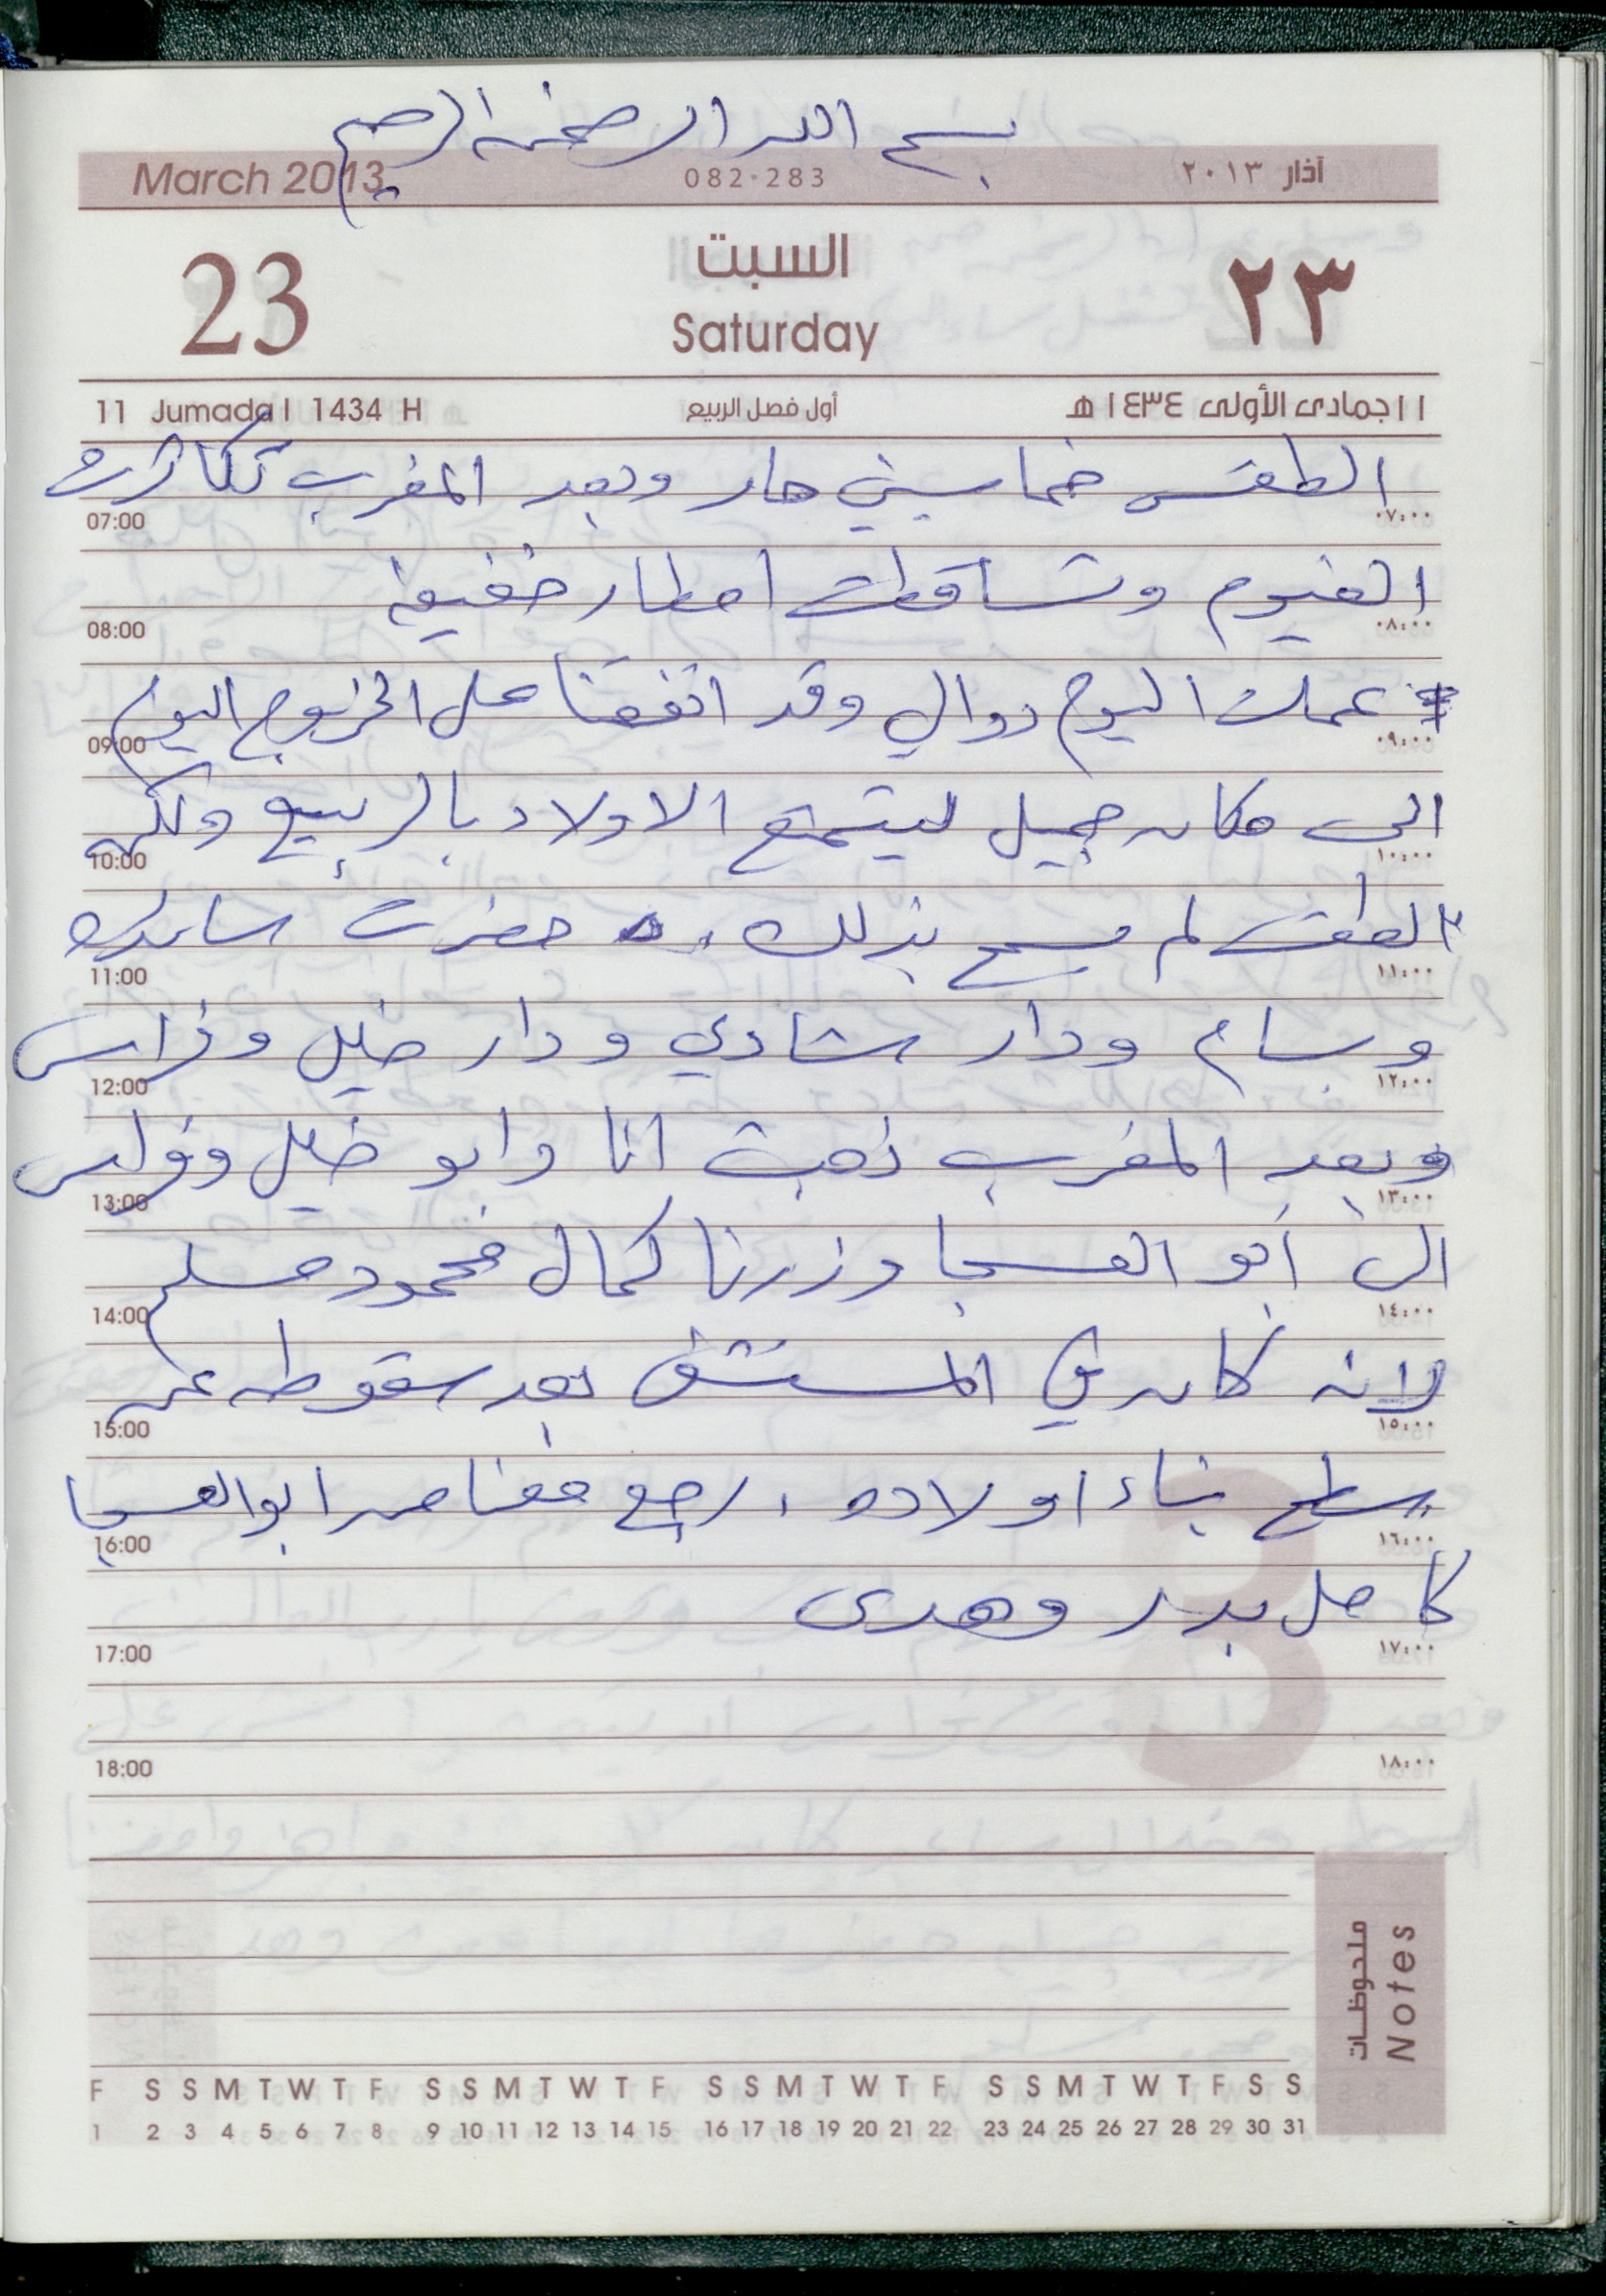 بسم الله الرحمن الرحيم
March 2013 082-283 آذار ٢٠١٣
23 السبت ٢٣
Saturday
11 Jumada I 1434 H أول فصل الربيع ١١ جمادى الأولى ١٤٣٤ هـ
الطقس خماسيني حار وبعد المغرب تكاثرت
07:00 ٠٧:٠٠
الغيوم وتساقطت امطار خفيفة
08:00 ٠٨:٠٠
عملت اليوم دوالي وقد اتفقنا على الخروج اليوم
09:00 ٠٩:٠٠
الى مكان جميل ليتمتع الاولاد بالربيع ولكن
10:00 ١٠:٠٠
الطقس لم يسمح بذلك . حضرت ساندره
11:00 ١١:٠٠
وبسام ودار شادي ودار خليل وفراس
12:00 ١٢:٠٠
وبعد المغرب ذهبت انا وابو خليل وفراس
13:00 ١٣:٠٠
الى أبو العسجا وزرنا كمال محمود مسلم
14:00 ١٤:٠٠
لانه كان في المستشفى بعد سقوطه عن
15:00 ١٥:٠٠
سطح بناء اولاده . رجع معنا من ابو العسجا
16:00 ١٦:٠٠
كامل بدر وهدى
17:00 ١٧:٠٠
18:00 ١٨:٠٠
ملحوظات
Notes
F S S M T W T F S S M T W T F S S M T W T F S S M T W T F S S
1 2 3 4 5 6 7 8 9 10 11 12 13 14 15 16 17 18 19 20 21 22 23 24 25 26 27 28 29 30 31